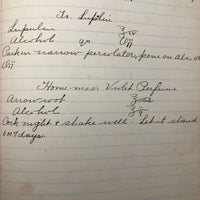 Tr. Lupulin
Lupulin ℥
Alcohol qs. O
Pack in narrow percolator, pour on alc. q
Home-made Violet Perfume
Arrowroot ℥
Alcohol ℥
Cork night & shake well. Let it stand
6 or 7 days.